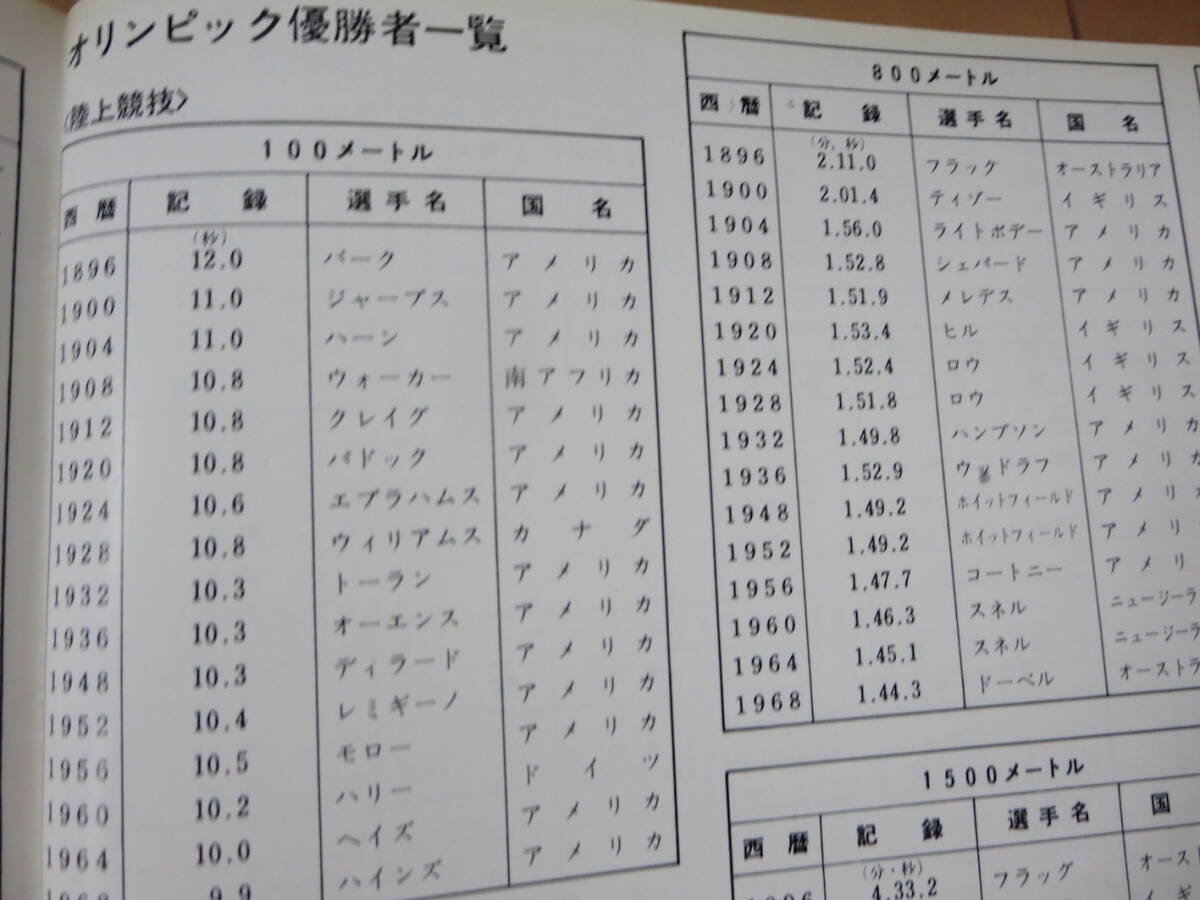 オリンピック優勝者一覧
〈陸上競技〉
100メートル
西暦 記録 選手名 国名
(秒)
1896 12.0 バーク アメリカ
1900 11.0 ジャーブス アメリカ
1904 11.0 ハーン アメリカ
1908 10.8 ウォーカー 南アフリカ
1912 10.8 クレイグ アメリカ
1920 10.8 パドック アメリカ
1924 10.6 エブラハムス アメリカ
1928 10.8 ウィリアムス カナダ
1932 10.3 トーラン アメリカ
1936 10.3 オーエンス アメリカ
1948 10.3 ディラード アメリカ
1952 10.4 レミギーノ アメリカ
1956 10.5 モロー アメリカ
1960 10.2 ハリー ドイツ
1964 10.0 ヘイズ アメリカ
1968 9.9 ハインズ アメリカ
800メートル
西暦 記録 選手名 国名
(分,秒)
1896 2.11.0 フラッグ オーストラリア
1900 2.01.4 ティゾー イギリス
1904 1.56.0 ライトボデー アメリカ
1908 1.52.8 シェパード アメリカ
1912 1.51.9 メレデス アメリカ
1920 1.53.4 ヒル イギリス
1924 1.52.4 ロウ イギリス
1928 1.51.8 ロウ イギリス
1932 1.49.8 ハンプソン アメリカ
1936 1.52.9 ウッドラフ アメリカ
1948 1.49.2 ホイットフィールド アメリカ
1952 1.49.2 ホイットフィールド アメリ
1956 1.47.7 コートニー アメリ
1960 1.46.3 スネル ニュージーラ
1964 1.45.1 スネル ニュージーラ
1968 1.44.3 ドーベル オーストラ
1500メートル
西暦 記録 選手名 国
(分・秒)
1896 4.33.2 フラッグ オースト
イギ